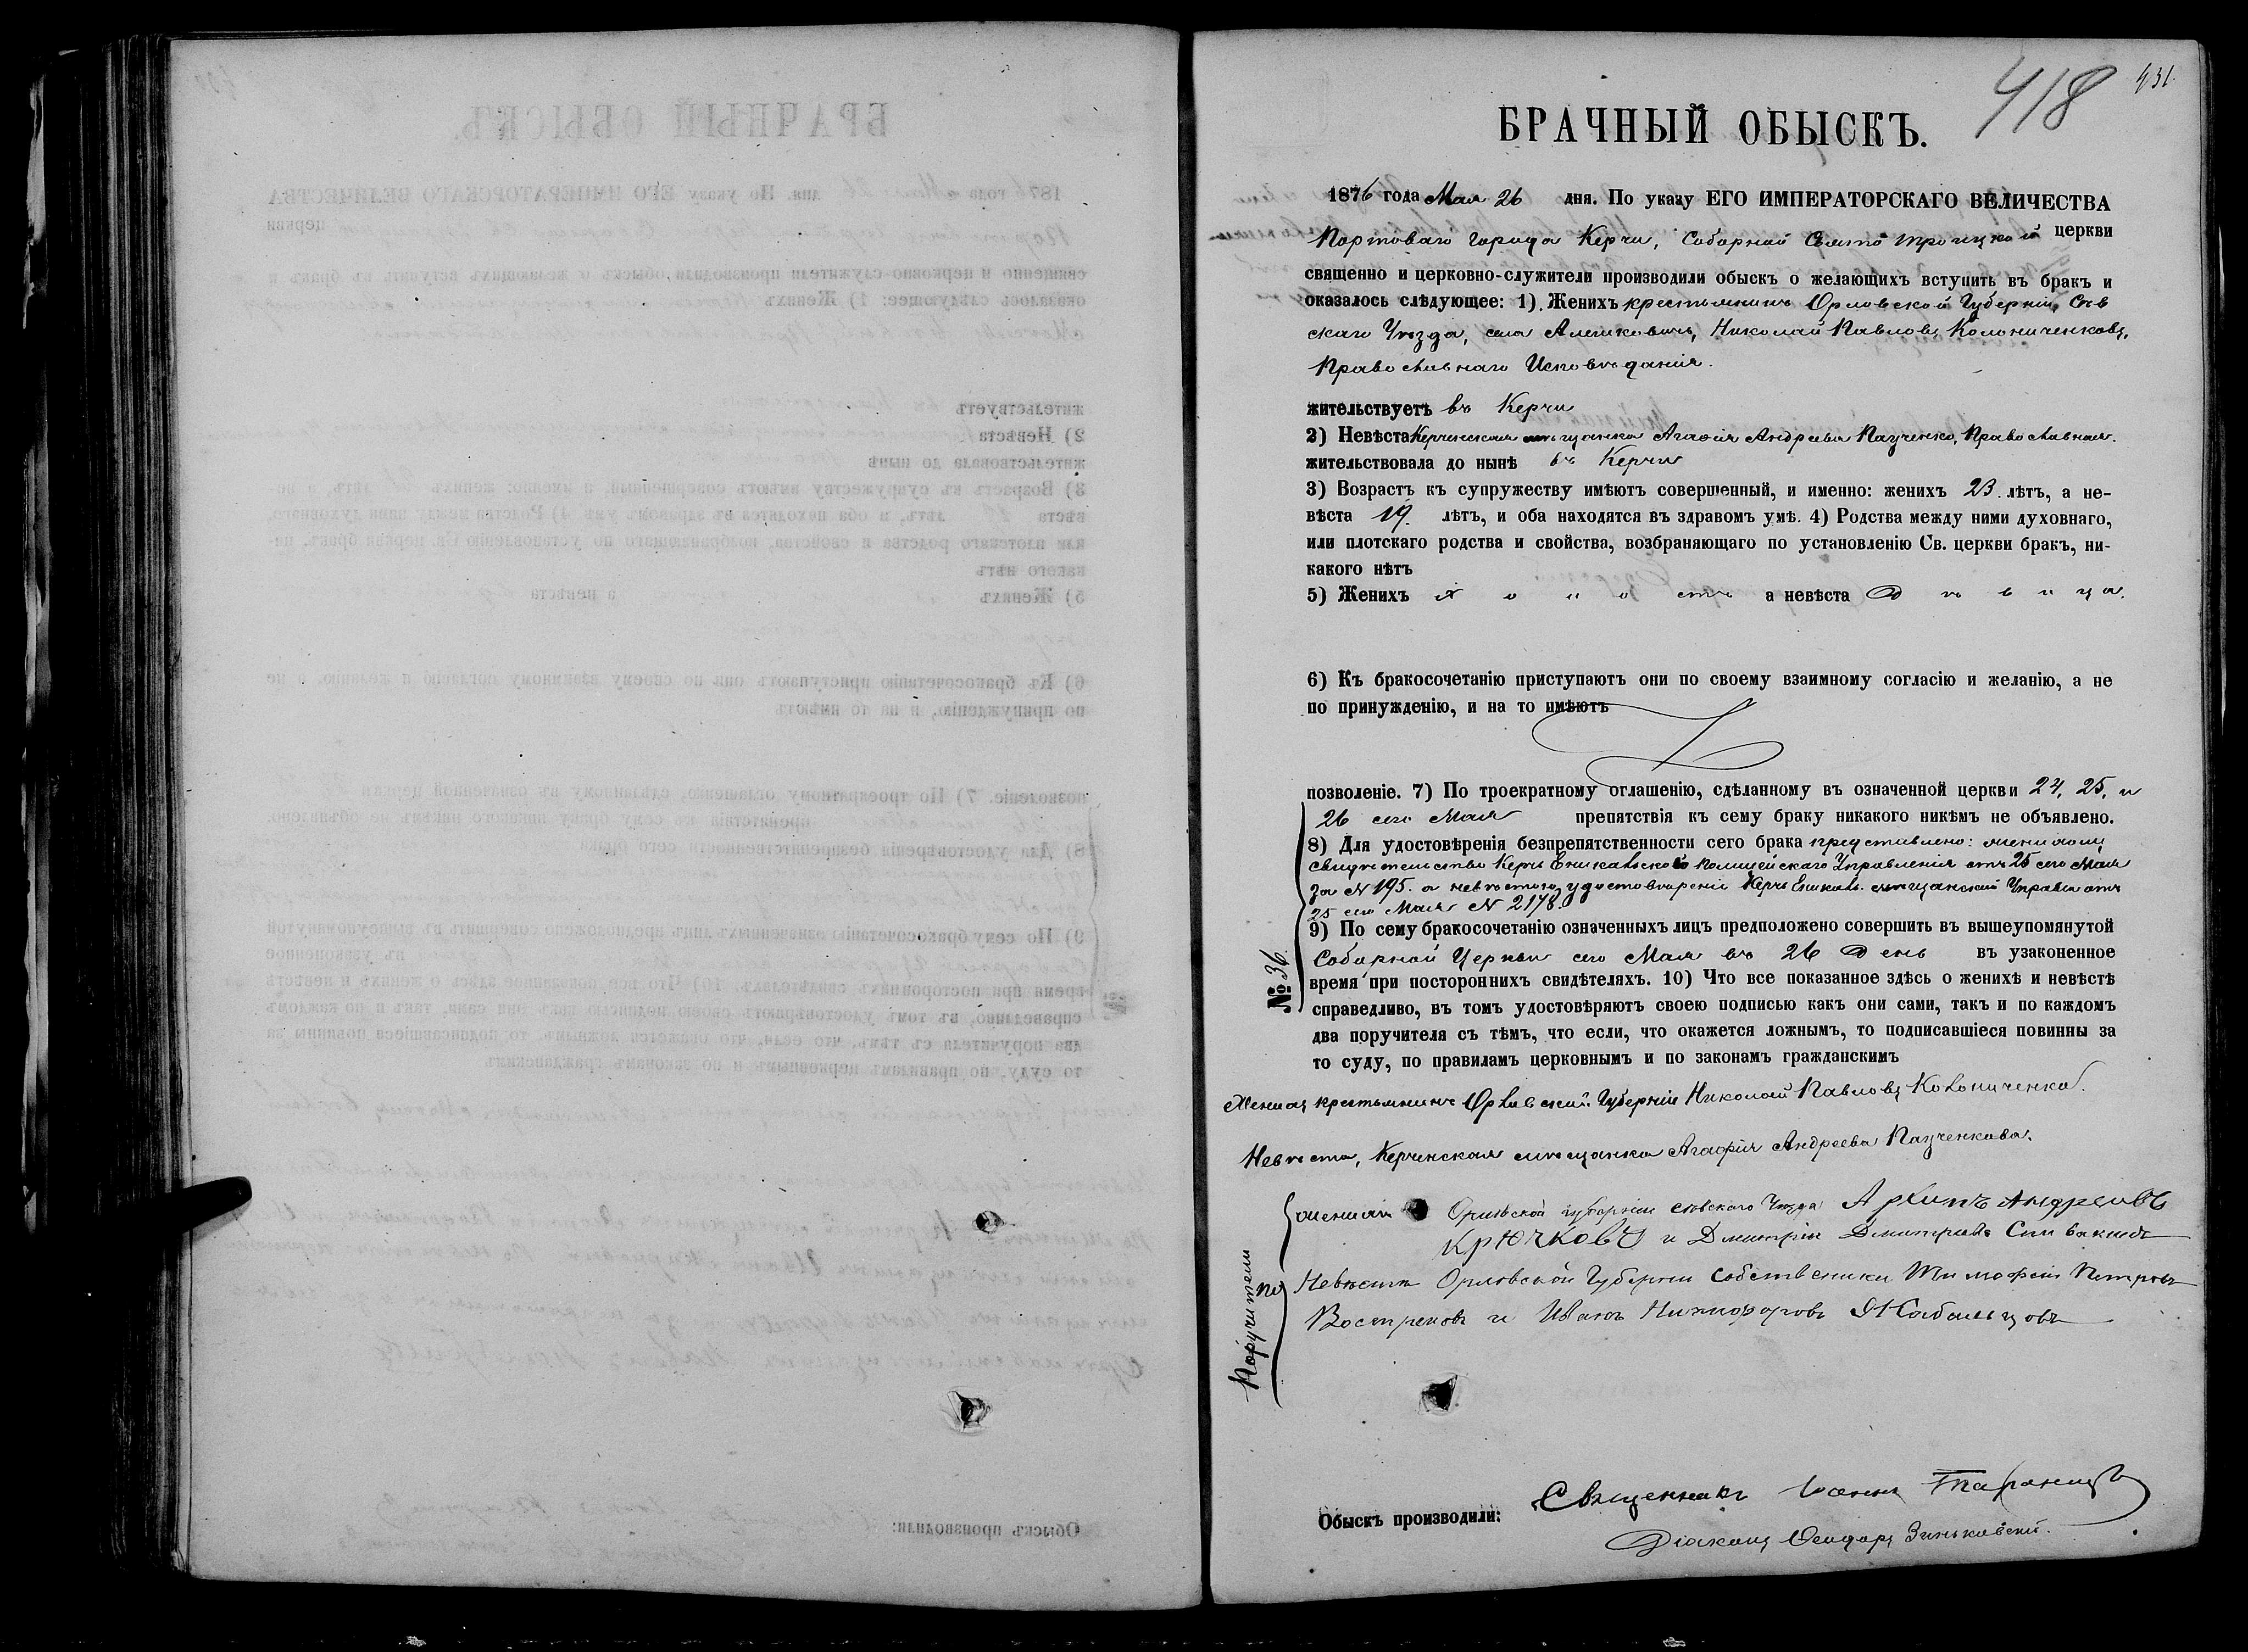 418
431.
БРАЧНЫЙ ОБЫСКЪ.
1876 года Мая 26 дня. По указу ЕГО ИМПЕРАТОРСКАГО ВЕЛИЧЕСТВА
Портоваго города Керчи, Соборной Свято Троицкой церкви
священно и церковно-служители производили обыскъ о желающихъ вступить въ бракъ и
оказалось слѣдующее: 1). Женихъ крестьянинъ Орловской Губерніи, Сѣв
скаго Уѣзда, села Алешковичь, Николай Павловъ Колониченковъ,
Православнаго Исповѣданія.
жительствуетъ въ Керчи
2) Невѣста Керченская мѣщанка Агафія Андреева Пащенко, Православная.
жительствовала до нынѣ въ Керчи
3) Возрастъ къ супружеству имѣютъ совершенный, и именно: женихъ 23 лѣтъ, а не-
вѣста 19. лѣтъ, и оба находятся въ здравомъ умѣ. 4) Родства между ними духовнаго,
или плотскаго родства и свойства, возбраняющаго по установленію Св. церкви бракъ, ни-
какого нѣтъ
5) Женихъ холостъ а невѣста Дѣвица.
6) Къ бракосочетанію приступаютъ они по своему взаимному согласію и желанію, а не
по принужденію, и на то имѣютъ
позволеніе. 7) По троекратному оглашенію, сдѣланному въ означенной церкви 24, 25, и
26 сего Мая препятствія къ сему браку никакого никѣмъ не объявлено.
8) Для удостовѣренія безпрепятственности сего брака представлено: женихомъ
свидѣтельство Керчь Еникальскаго Полицейскаго Управленія отъ 25 сего Мая
за № 195. а невѣстою удостовѣреніе Керчь Еникаль. мѣщанской Управы отъ
25 сего Мая № 2178.
9) По сему бракосочетанію означенныхъ лицъ предположено совершить въ вышеупомянутой
Соборной Церкви сего Мая въ 26 День въ узаконенное
время при постороннихъ свидѣтеляхъ. 10) Что все показанное здѣсь о женихѣ и невѣстѣ
справедливо, въ томъ удостовѣряютъ своею подписью какъ они сами, такъ и по каждомъ
два поручителя съ тѣмъ, что если, что окажется ложнымъ, то подписавшіеся повинны за
то суду, по правиламъ церковнымъ и по законамъ гражданскимъ
№ 36.
Женихъ крестьянинъ Орловской Губерніи Николай Павловъ Колониченко.
Невѣста, Керченская мѣщанка Агафія Андреева Пащенкова.
Поручители
по
женихѣ Орловской губерніи Сѣвскаго Уѣзда Архипъ Андреевъ
Крючковъ и Дмитрій Дмитріевъ Спивакинъ
Невѣстѣ Орловской Губерніи собственники Тимофей Петровъ
Востриковъ и Иванъ Никифоровъ Жабальцовъ
Обыскъ производили: Священникъ Іоаннъ
Діаконъ Ѳеодоръ Зиньковскій.